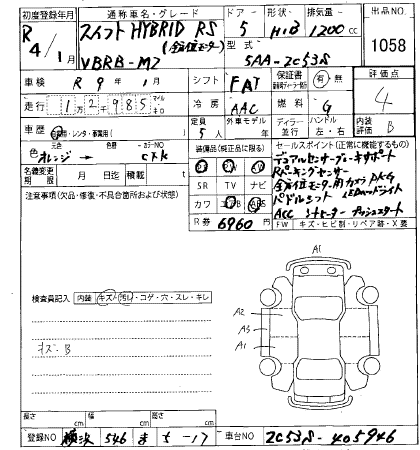 初度登録年月 通称車名・グレード ドアー 形状 排気量 出品NO
R 4/1 スイフト HYBRID RS 5 H/B 1200 cc 1058
(全方位モニター) 型式
VBRB-M7 5AA-ZC53S
車検 R 9 年 1 月 シフト FAT 保証書 有・無 評価点
走行 1万2千985 マイル Km 冷房 AAC 燃料 G 4
車歴 自家用・レンタ・事業用( ) 定員 5人 外車モデル 年 ディーラー 並行 ハンドル 左・右 内装評価 B
色 元色 オレンジ → 色替 カラーNO CFK
装備品(純正品に限る) セールスポイント(正常に機能するもの)
名義変更期限 月 日迄 積載 t
SR TV ナビ
カワ A/B ABS
R券 6960 円
デュアルセンサーブレーキサポート
Rパーキングセンサー
全方位モニター用カメラPKG
パドルシフト LEDヘッドライト
ACC シートヒーター プッシュスタート
FW キズ・ヒビ割・リペア跡・X要
注意事項(欠品・修復・不具合箇所および状態)
検査員記入 内装 キズ・汚れ・コゲ・穴・スレ・キレ
キズ・B
A1
A2
A3
A1
長さ cm 幅 cm 高さ cm
登録NO 横浜 546 ま 5-17 車台NO ZC53S-405946